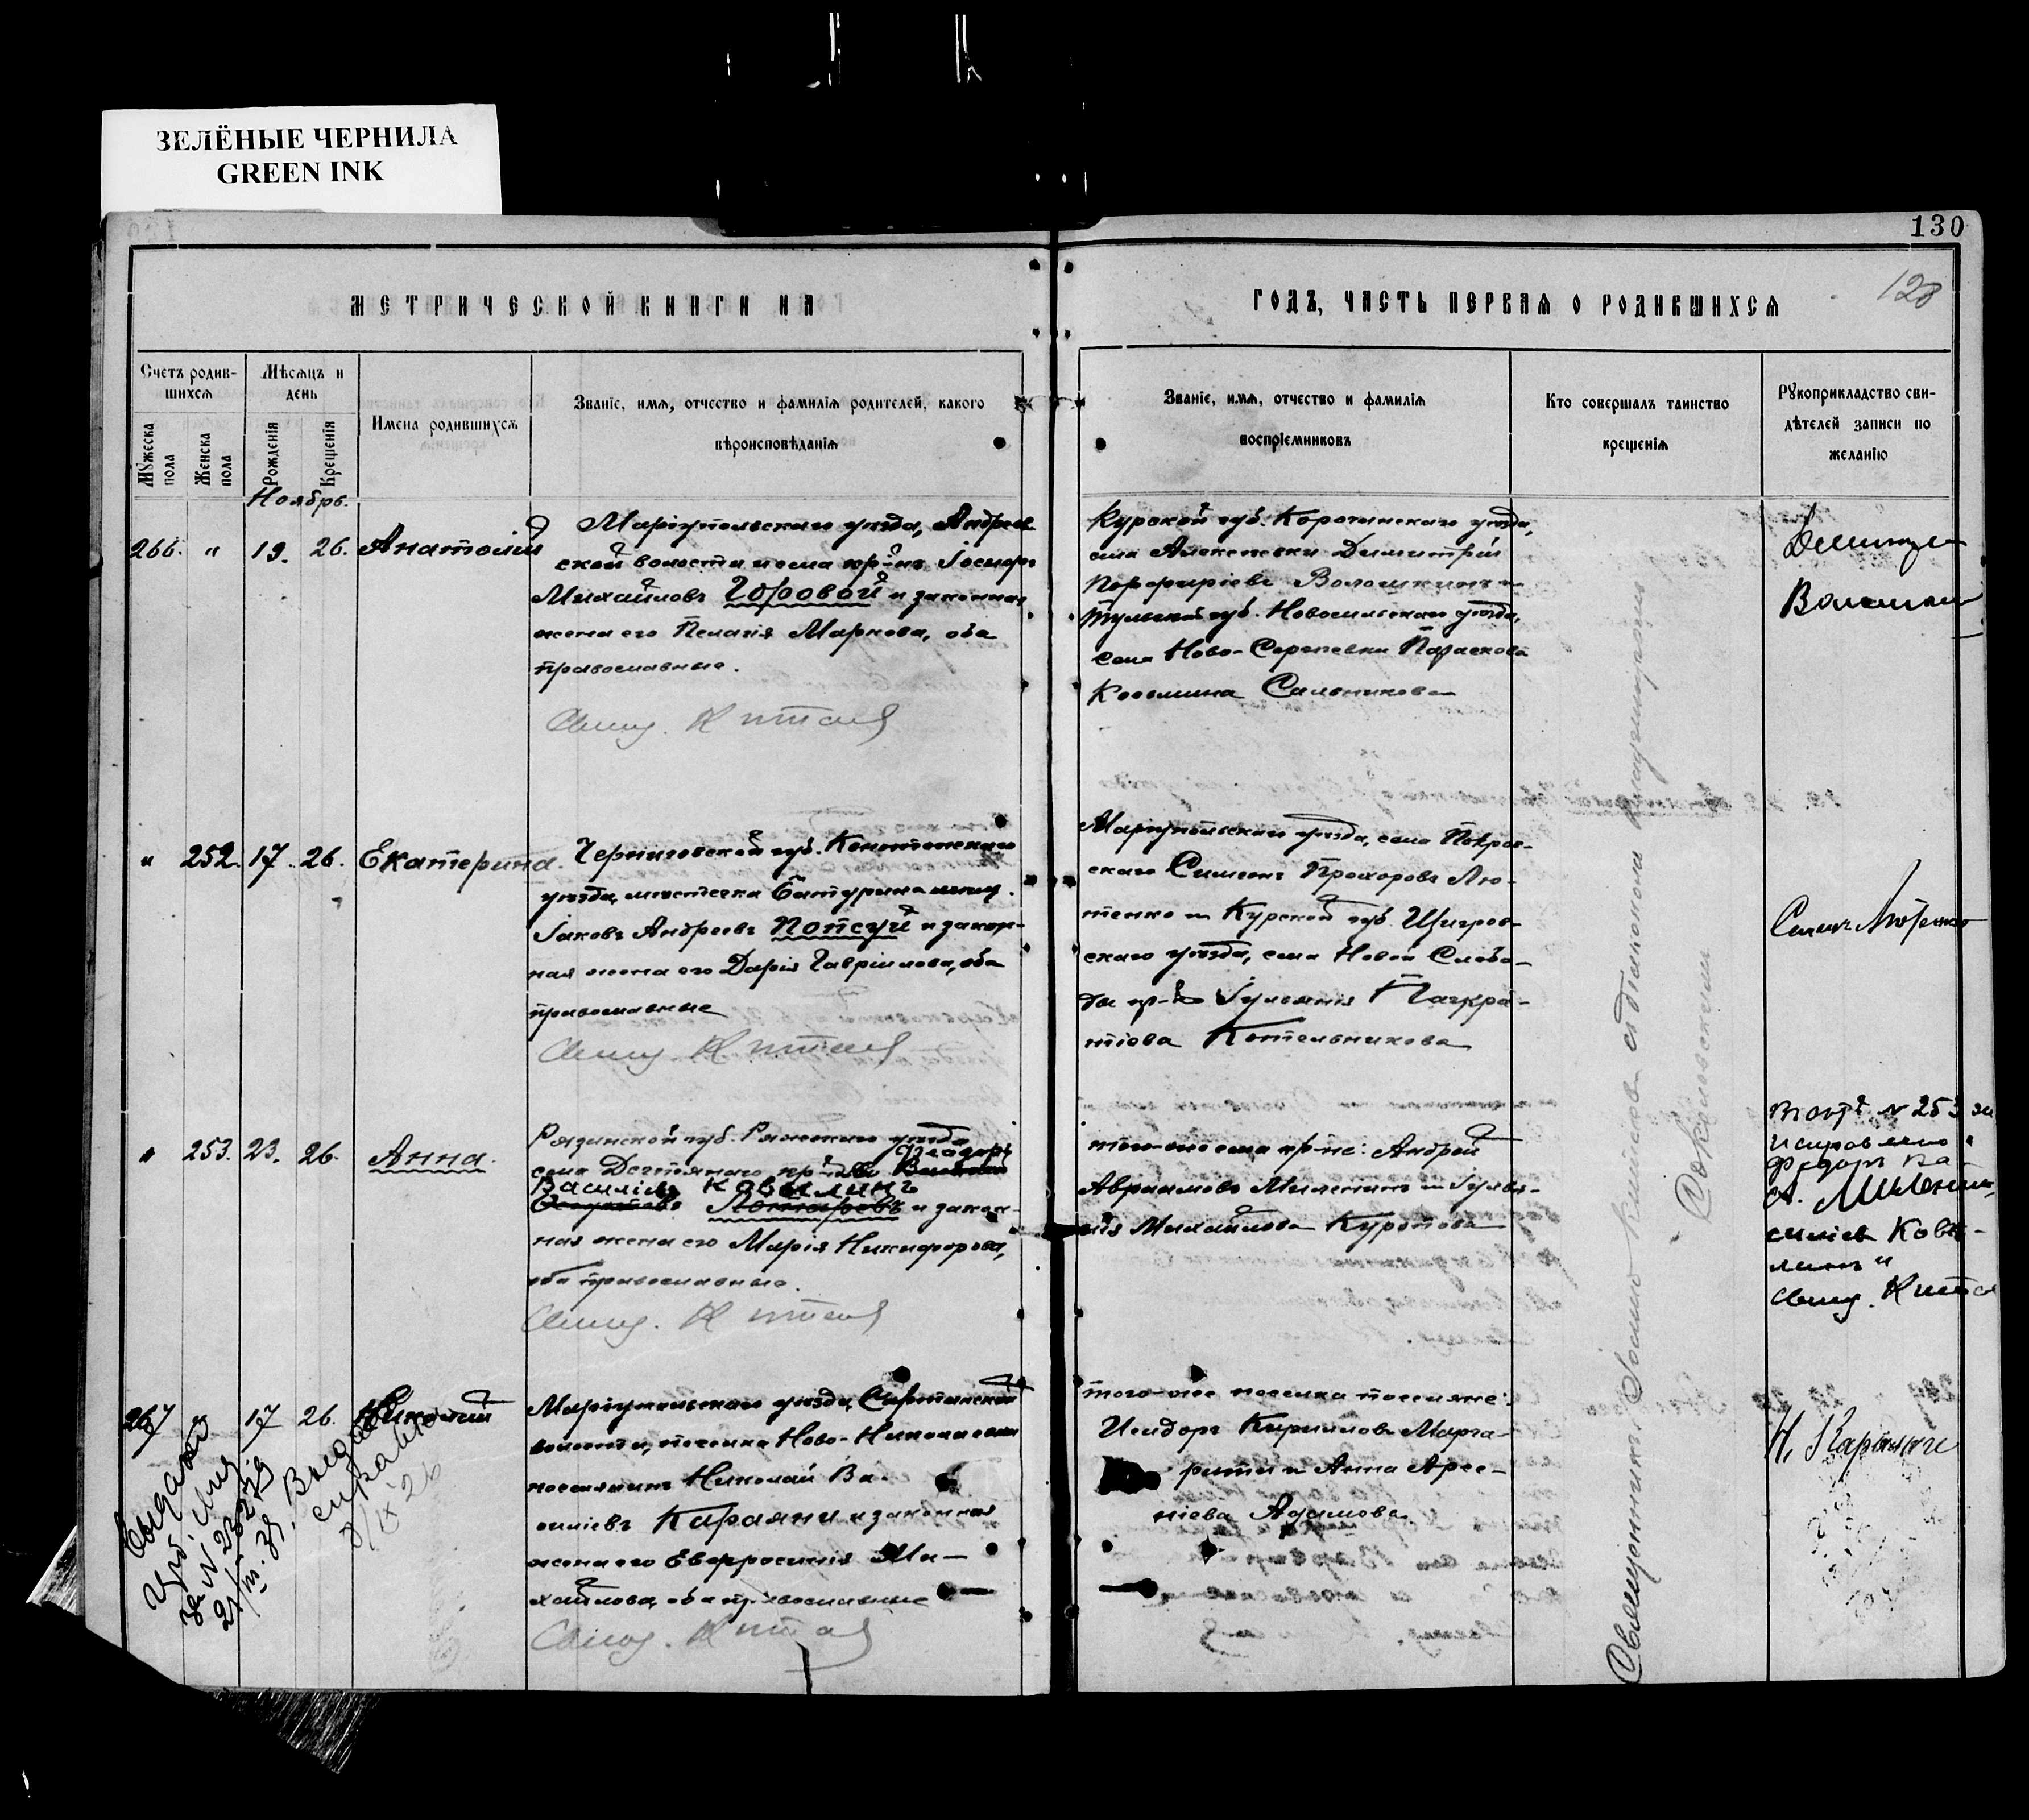 ЗЕЛЁНЫЕ ЧЕРНИЛА
GREEN INK
130
128
МЕТРИЧЕСКОЙ КНИГИ НА
ГОДЪ, ЧАСТЬ ПЕРВАЯ О РОДИВШИХСЯ
Счетъ родив-
шихся
Мужеска пола
Женска пола
Мѣсяцъ и
день
Рожденія
Крещенія
Имена родившихся
Званіе, имя, отчество и фамилія родителей, какого
вѣроисповѣданія
Званіе, имя, отчество и фамилія
воспріемниковъ
Кто совершалъ таинство
крещенія
Рукоприкладство сви-
дѣтелей записи по
желанію
Ноябрь.
266. " 19. 26. Анатолій
Маріупольскаго уѣзда, Андреев
ской волости и села кр-нъ
Михайловъ Гофовой и законная
жена его Пелагія Маркова, оба
православные.
Свящ. Китай
Курской губ. Корочинскаго уѣзда,
села Алексеевки Димитрій
Порфиріевъ Волошкинъ и
Тульской губ. Новосильскаго уѣзда,
села Ново-Сергеевки Параскева
Косьмина Сальникова
" 252. 17. 26. Екатерина.
Черниговской губ. Конотопскаго
уѣзда, мѣстечка Батурина мѣщ.
Іаковъ Андреевъ Попсуй и закон-
ная жена его Дарія Гавріилова, оба
православные
Свящ. Китай
Маріупольскаго уѣзда, села Покров-
скаго Симеонъ Прохоровъ Лю-
тенко и Курской губ. Щигров-
скаго уѣзда, села Новой Слобо-
ды кр-ка Іуліанія Панкра-
тіева Котельникова
Симеонъ Лютенко
" 253. 23. 26. Анна.
Рязанской губ. Ряжскаго уѣзда
Ѳеодоръ
села Дегтянаго кр-нъ
Василіевъ Ковылинъ
и закон-
ная жена его Марія Никифорова,
оба православные.
Свящ. Китай
того-же села кр-не: Андрей
Авраамовъ Миленинъ и Іуліа-
нія Михайлова Куротова
В ст. № 253 за
исправлено "
Федоръ Ва-
А. Миленинъ
силіев Ковы-
линъ"
Свящ. Китай
267 " 17 26. Николай
Маріупольскаго уѣзда, Сартанской
волости, поселка Ново-Николаевки
поселянинъ Николай Ва-
силіевъ Караяни и законная
жена его Евфросинія Ми-
хайлова, оба православные
Свящ. Китай
того-же поселка поселяне:
Исидоръ Кирилловъ Марга-
рити и Анна Арсе-
ніева Адамова
Н. Караяни
Выдано
Выдана
справка
Священникъ Іоаннъ Китай съ діакономъ
Соколовскимъ